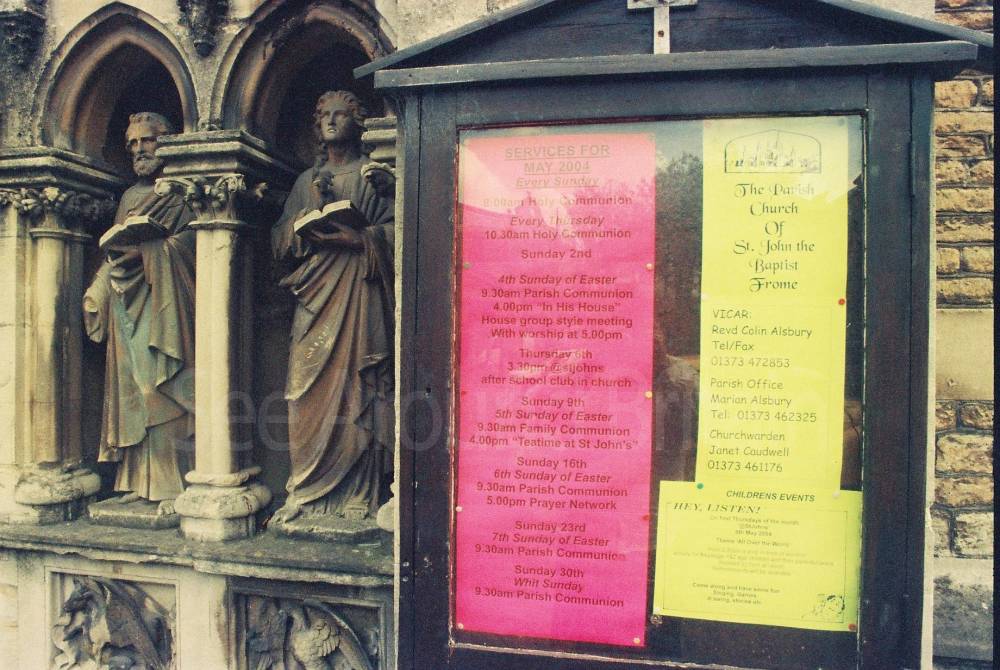 SERVICES FOR
MAY 2004
Every Sunday
8.00am Holy Communion
Every Thursday
10.30am Holy Communion
Sunday 2nd
4th Sunday of Easter
9.30am Parish Communion
4.00pm "In His House"
House group style meeting
With worship at 5.00pm
Thursday 6th
3.30pm @stjohns
after school club in church
Sunday 9th
5th Sunday of Easter
9.30am Family Communion
4.00pm "Teatime at St John's"
Sunday 16th
6th Sunday of Easter
9.30am Parish Communion
5.00pm Prayer Network
Sunday 23rd
7th Sunday of Easter
9.30am Parish Communion
Sunday 30th
Whit Sunday
9.30am Parish Communion
The Parish
Church
Of
St. John the
Baptist
Frome
VICAR:
Revd Colin Alsbury
Tel/Fax
01373 472853
Parish Office
Marian Alsbury
Tel: 01373 462325
Churchwarden
Janet Caudwell
01373 461176
CHILDRENS EVENTS
HEY, LISTEN!
On first Thursdays of the month
@StJohns
6th May 2004
Theme 'All Over the World'
Come along and have some fun
Singing, Games,